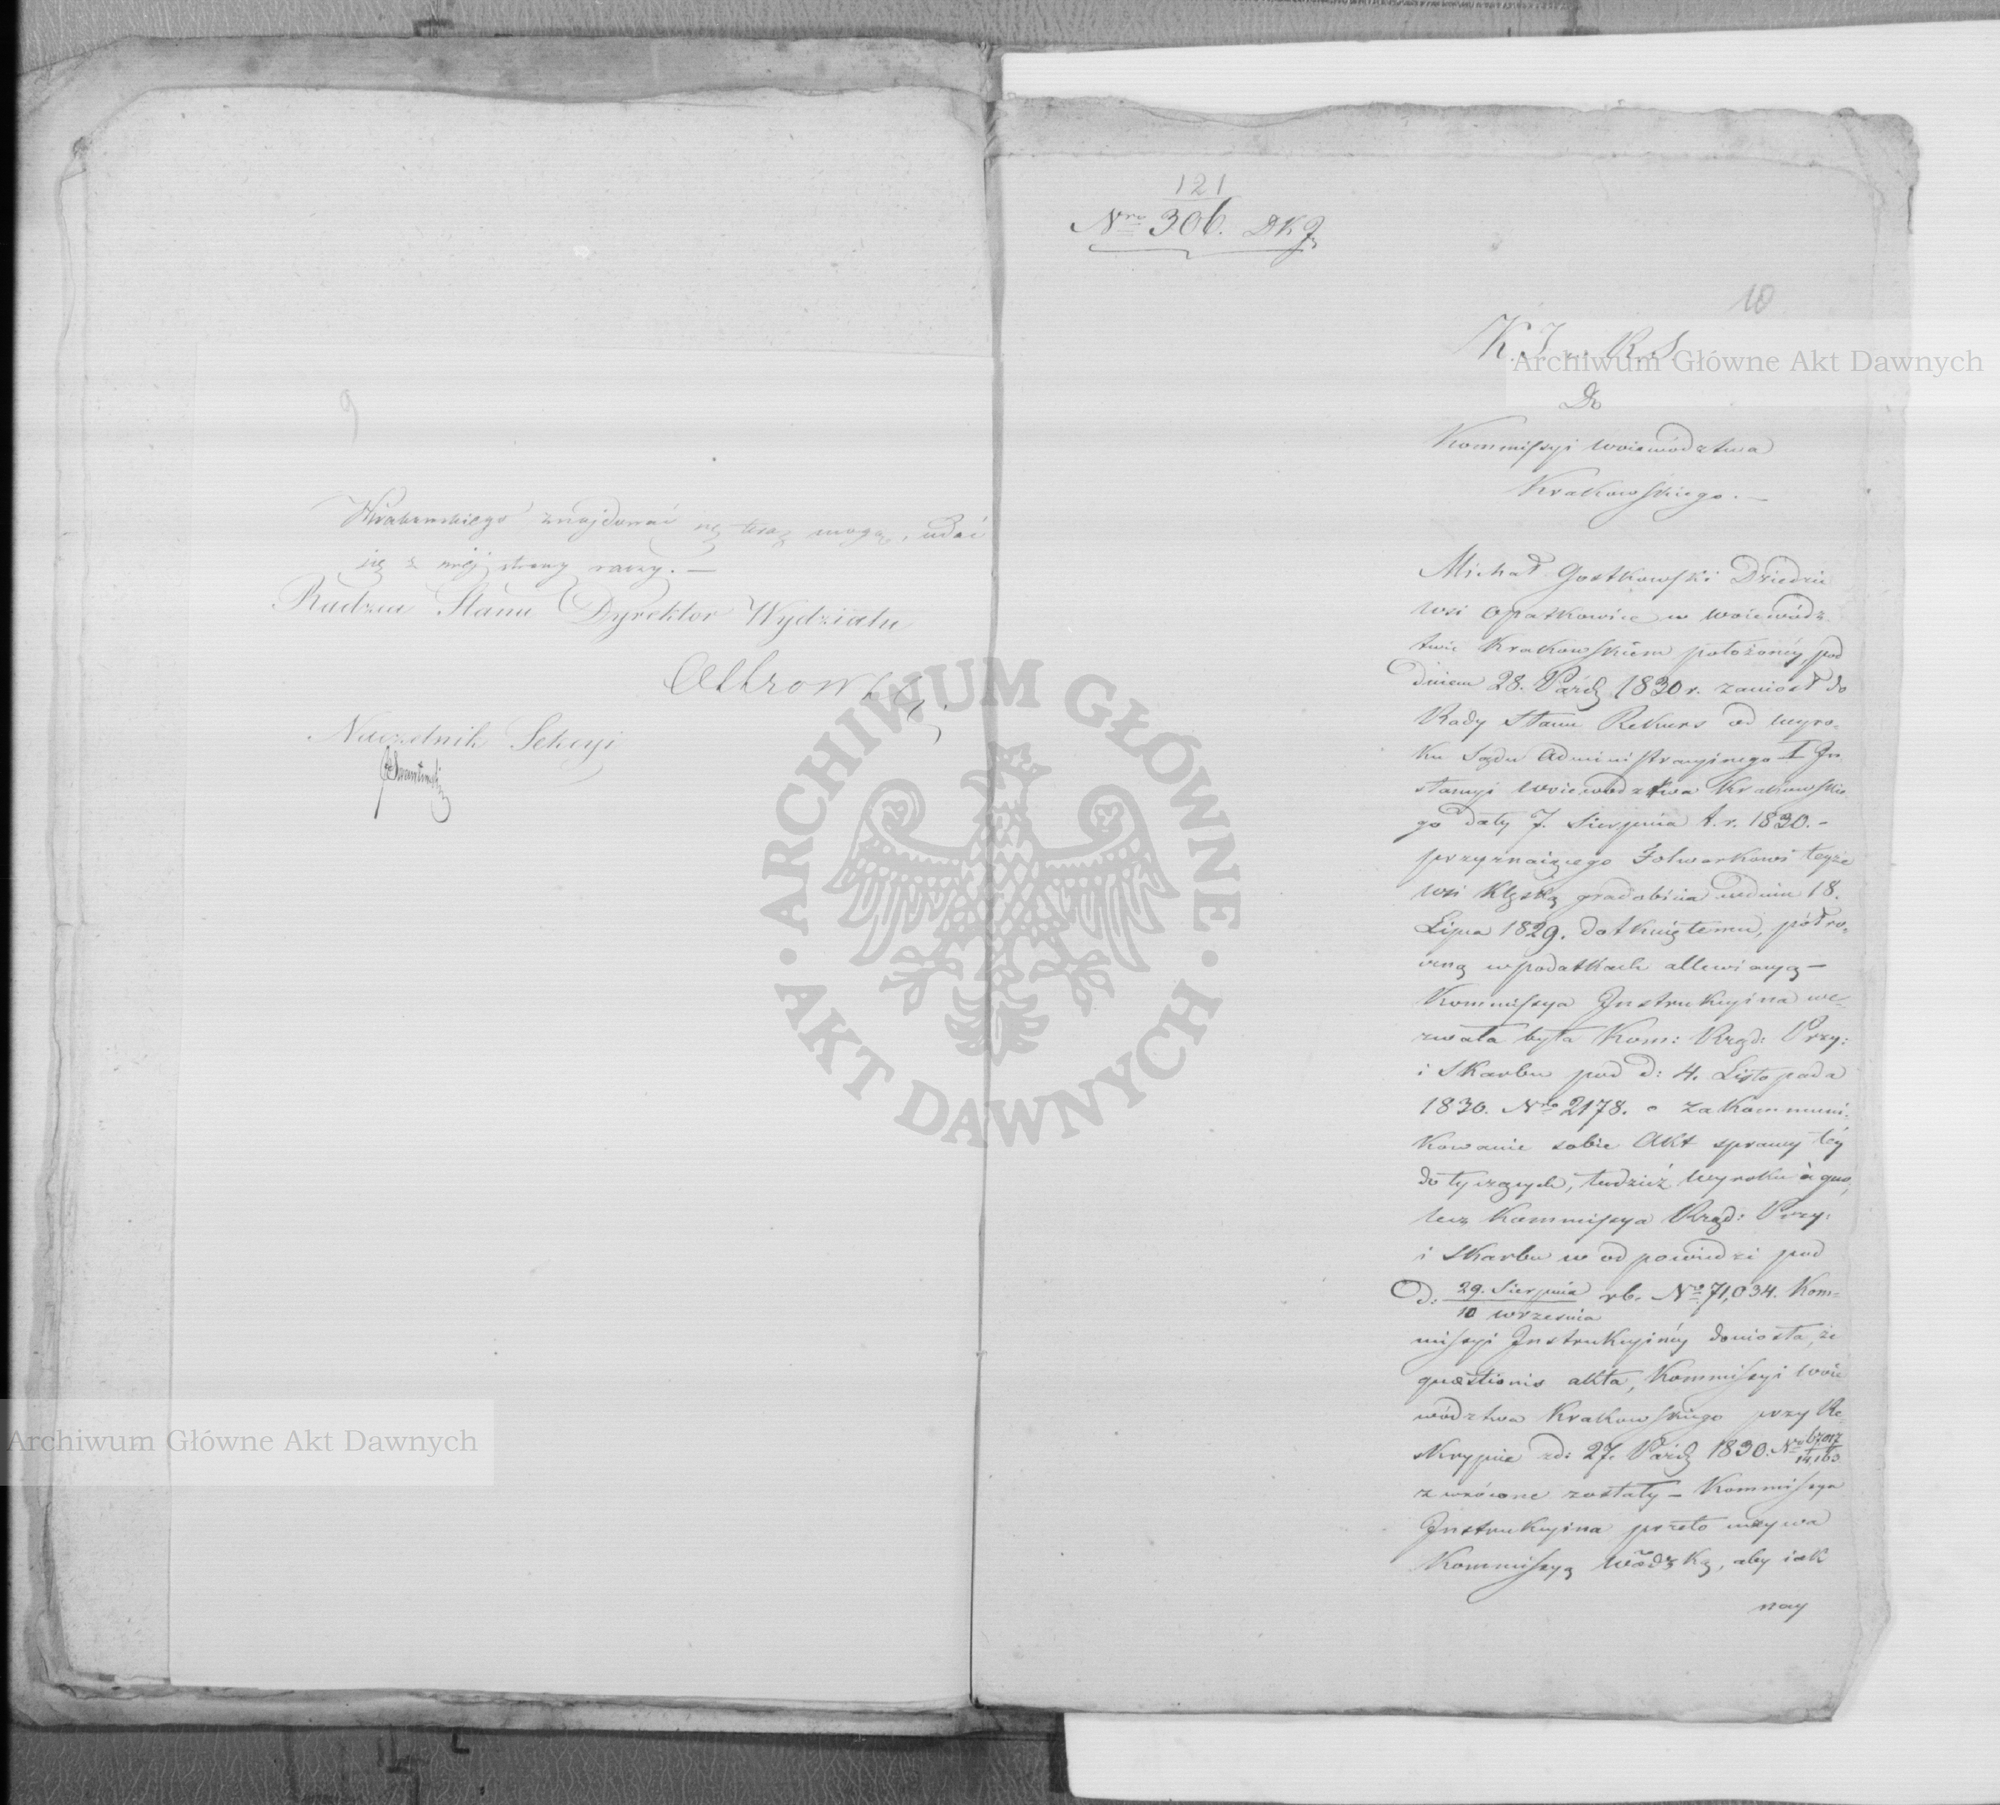 9
Krakowskiego znajdować się teraz mogą, udać
się z mej strony raczy. —
Radzca Stanu Dyrektor Wydziału
Naczelnik Sekcyi
121
Nro 306. DKJ
10
K. I. R. S.
Do
Kommissyi Woiewodztwa
Krakowskiego. —
Michał Gostkowski Dziedzic
wsi Opatkowice w Woiewódz-
twie Krakowskiem położoney, pod
dniem 28. Paźdz 1830 r. zaniosł do
Rady Stanu Rekurs od wyro-
ku Sądu Administracyinego I In-
stancyi Woiewodztwa Krakowskie
go daty 7. Sierpnia t. r. 1830. -
przyznaiącego Folwarkowi teyże
wsi klęską gradobicia w dniu 18.
Lipca 1829. dotkniętemu, półro-
czną w podatkach allewiacyą —
Kommissya Instrukcyina we-
zwała była Kom: Rząd: Przy:
i Skarbu pod d: 4. Listopada
1830. Nro 2178. o zakommuni-
kowanie sobie Akt sprawy tey
dotyczących, tudzież wyroku a quo,
lecz Kommissya Rząd: Przy:
i Skarbu w odpowiedzi pod
d: 29. Sierpnia / 10 Września rb. Nro 71,034. Kom-
missyi Instrukcyiney doniosła, że
quæstionis akta, Kommissyi Woie
wództwa Krakowskiego przy Re-
skrypcie zd: 27. Paźdz 1830. Nro
zwrócone zostały — Kommissya
Instrukcyina przeto wzywa
Kommissyą Wódzką, aby iak
nay
ARCHIWUM GŁÓWNE
AKT DAWNYCH
Archiwum Główne Akt Dawnych
Archiwum Główne Akt Dawnych